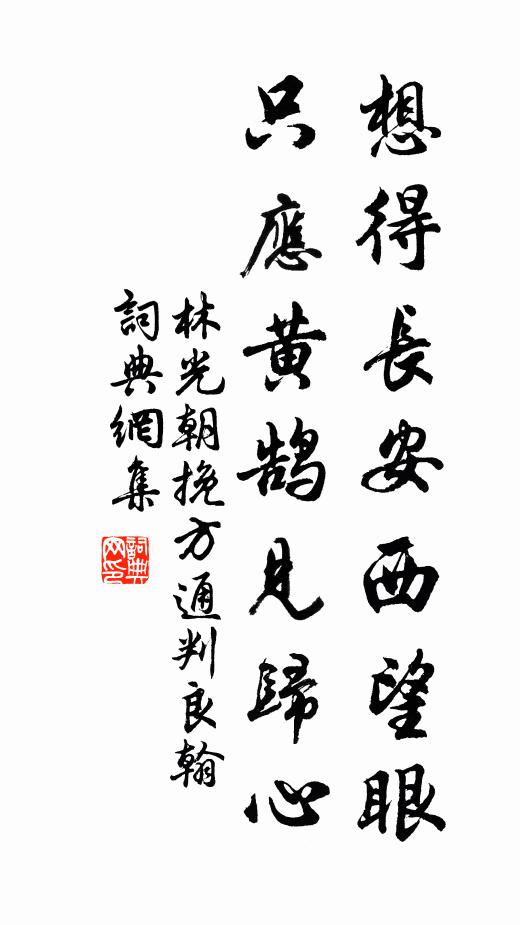 想得長安西望眼
只應黃鹄見歸心
林光朝挽方通判良翰
詞典網集
詞典網印